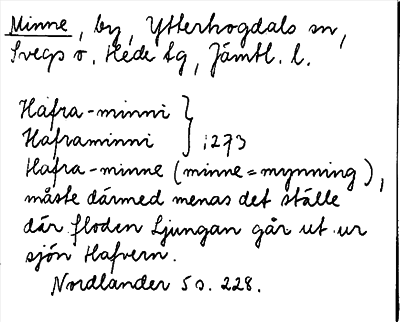 Minne, by, Ytterhogdals sn,
Svegs o. Hede tg, Jämtl. l.
Hafra-minni }
Haframinni } 1273
Hafra-minne (minne=mynning),
måste därmed menas det ställe
där floden Ljungan går ut ur
sjön Hafvern.
Nordlander 5 s. 228.